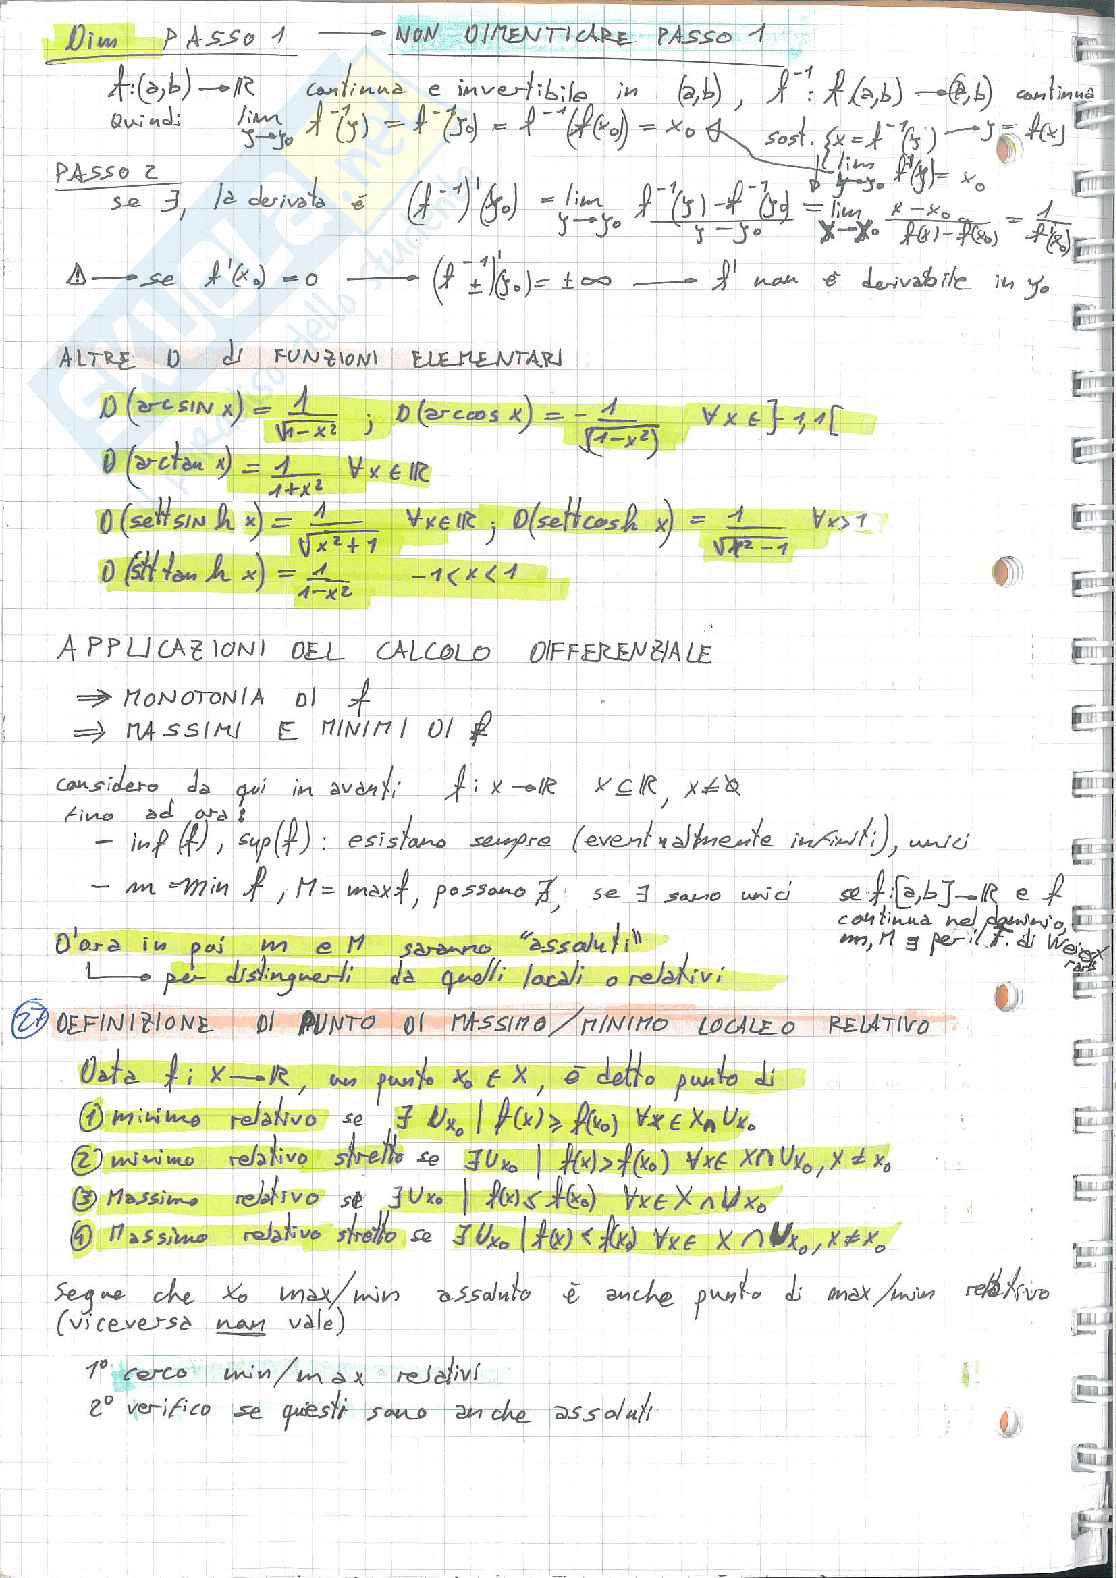 Dim PASSO 1 → NON DIMENTICARE PASSO 1
f:(a,b)→ℝ continua e invertibile in (a,b), f⁻¹: f(a,b)→(a,b) continua
Quindi lim y→y₀ f⁻¹(y) = f⁻¹(y₀) = f⁻¹(f(x₀)) = x₀ sost. {x = f⁻¹(y) → y = f(x)
lim y→y₀ f⁻¹(y) = x₀
PASSO 2
se ∃, la derivata è (f⁻¹)'(y₀) = lim y→y₀ (f⁻¹(y) - f⁻¹(y₀))/(y - y₀) = lim x→x₀ (x - x₀)/(f(x) - f(x₀)) = 1/f'(x₀)
⚠ → se f'(x₀) = 0 → (f⁻¹)'(y₀) = ±∞ → f' non è derivabile in y₀
ALTRE D di FUNZIONI ELEMENTARI
D(arcsin x) = 1/√(1-x²) ; D(arccos x) = - 1/√(1-x²) ∀x∈]-1,1[
D(arctan x) = 1/(1+x²) ∀x∈ℝ
D(settsinh x) = 1/√(x²+1) ∀x∈ℝ ; D(settcosh x) = 1/√(x²-1) ∀x>1
D(sett tanh x) = 1/(1-x²) -1<x<1
APPLICAZIONI DEL CALCOLO DIFFERENZIALE
⇒ MONOTONIA DI f
⇒ MASSIMI E MINIMI DI f
considero da qui in avanti f: X→ℝ X⊆ℝ, X≠∅
fino ad ora:
- inf(f), sup(f): esistano sempre (eventualmente infiniti), unici
- m = min f, M = max f, possono ∄; se ∃ sono unici se f:[a,b]→ℝ e f
continua nel dominio,
m, M ∃ per il T. di Weierst
rass
D'ora in poi m e M saranno "assoluti"
→ per distinguerli da quelli locali o relativi
27 DEFINIZIONE DI PUNTO DI MASSIMO/MINIMO LOCALE O RELATIVO
Data f: X→ℝ, un punto x₀∈X, è detto punto di
① minimo relativo se ∃ Ux₀ | f(x) ⩾ f(x₀) ∀x∈X∩Ux₀
② minimo relativo stretto se ∃Ux₀ | f(x)>f(x₀) ∀x∈ X∩Ux₀, x≠x₀
③ Massimo relativo se ∃Ux₀ | f(x) ⩽ f(x₀) ∀x∈X∩Ux₀
④ Massimo relativo stretto se ∃Ux₀ | f(x) < f(x₀) ∀x∈ X∩Ux₀, x≠x₀
Segue che x₀ max/min assoluto è anche punto di max/min relativo
(viceversa non vale)
1° cerco min/max relativi
2° verifico se questi sono anche assoluti